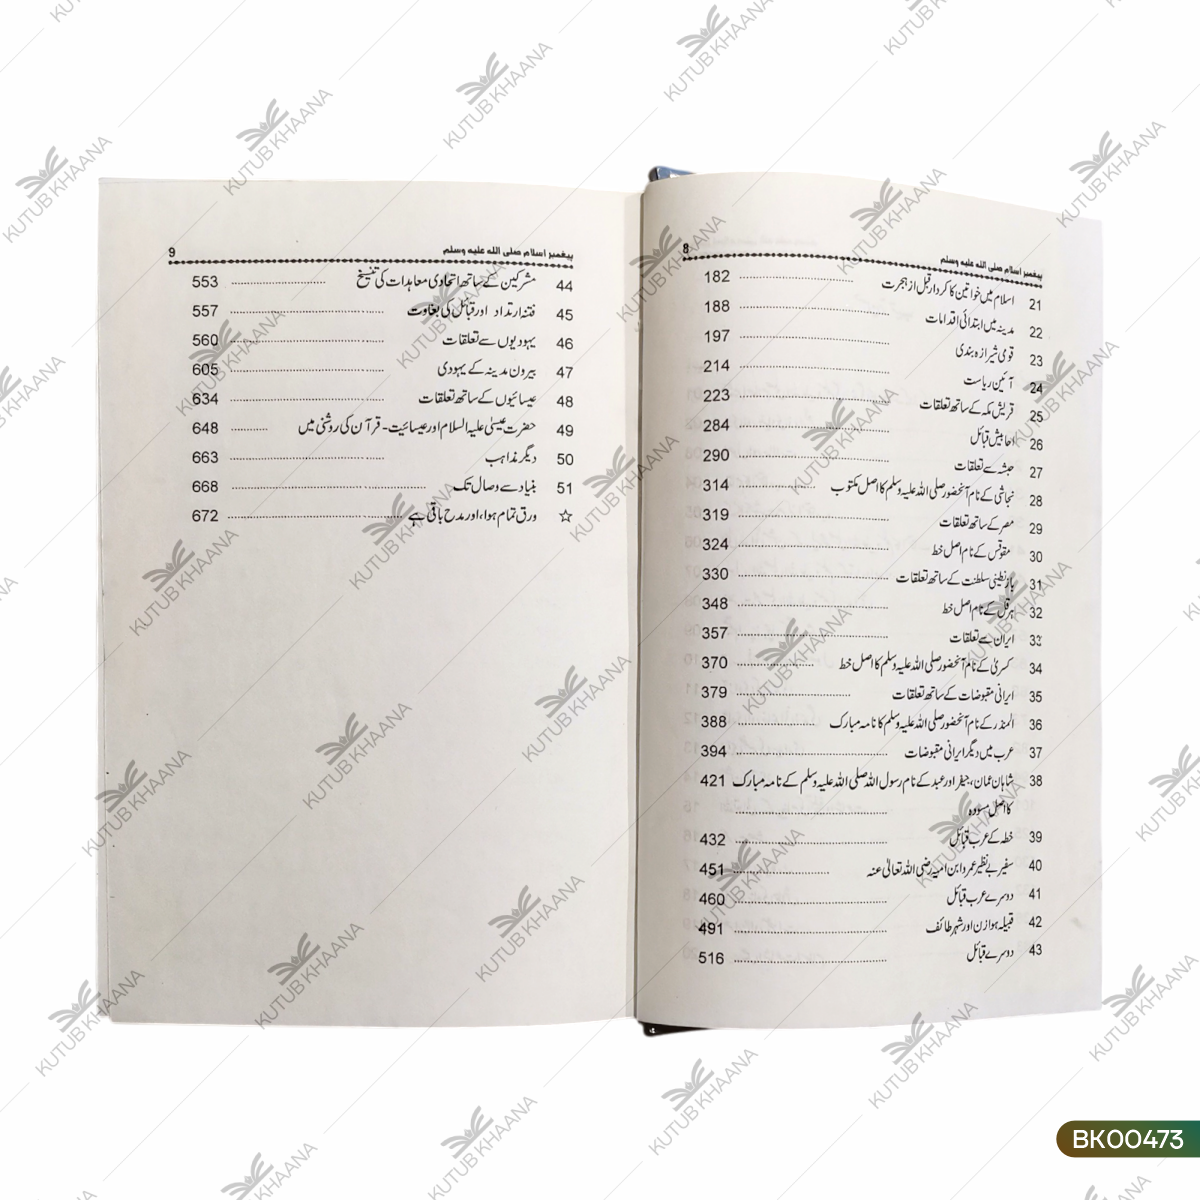 پیغمبر اسلام صلی الله علیه وسلم 8
21 اسلام میں خواتین کا کردار قبل از ہجرت 182
22 مدینہ میں ابتدائی اقدامات 188
23 قومی شیرازہ بندی 197
24 آئین ریاست 214
25 قریش مکہ کے ساتھ تعلقات 223
26 احابیش قبائل 284
27 حبشہ سے تعلقات 290
28 نجاشی کے نام آنحضور صلی اللہ علیہ وسلم کا اصل مکتوب 314
29 مصر کے ساتھ تعلقات 319
30 مقوقس کے نام اصل خط 324
31 بازنطینی سلطنت کے ساتھ تعلقات 330
32 ہرقل کے نام اصل خط 348
33 ایران سے تعلقات 357
34 کسریٰ کے نام آنحضور صلی اللہ علیہ وسلم کا اصل خط 370
35 ایرانی مقبوضات کے ساتھ تعلقات 379
36 المنذر کے نام آنحضور صلی اللہ علیہ وسلم کا نامہ مبارک 388
37 عرب میں دیگر ایرانی مقبوضات 394
38 شاہان عمان، جیفر اور عبد کے نام رسول اللہ صلی اللہ علیہ وسلم کے نامہ مبارک 421
کا اصل مسودہ
39 خطہ کے عرب قبائل 432
40 سفیر بے نظیر عمرو ابن امیہ رضی اللہ تعالیٰ عنہ 451
41 دوسرے عرب قبائل 460
42 قبیلہ ہوازن اور شہر طائف 491
43 دوسرے قبائل 516
پیغمبر اسلام صلی الله علیه وسلم 9
44 مشرکین کے ساتھ اتحادی معاہدات کی تنسیخ 553
45 فتنہ ارتداد اور قبائل کی بغاوت 557
46 یہودیوں سے تعلقات 560
47 بیرون مدینہ کے یہودی 605
48 عیسائیوں کے ساتھ تعلقات 634
49 حضرت عیسیٰ علیہ السلام اور عیسائیت - قرآن کی روشنی میں 648
50 دیگر مذاہب 663
51 بنیاد سے وصال تک 668
☆ ورق تمام ہوا، اور مدح باقی ہے 672
KUTUB KHAANA
BK00473